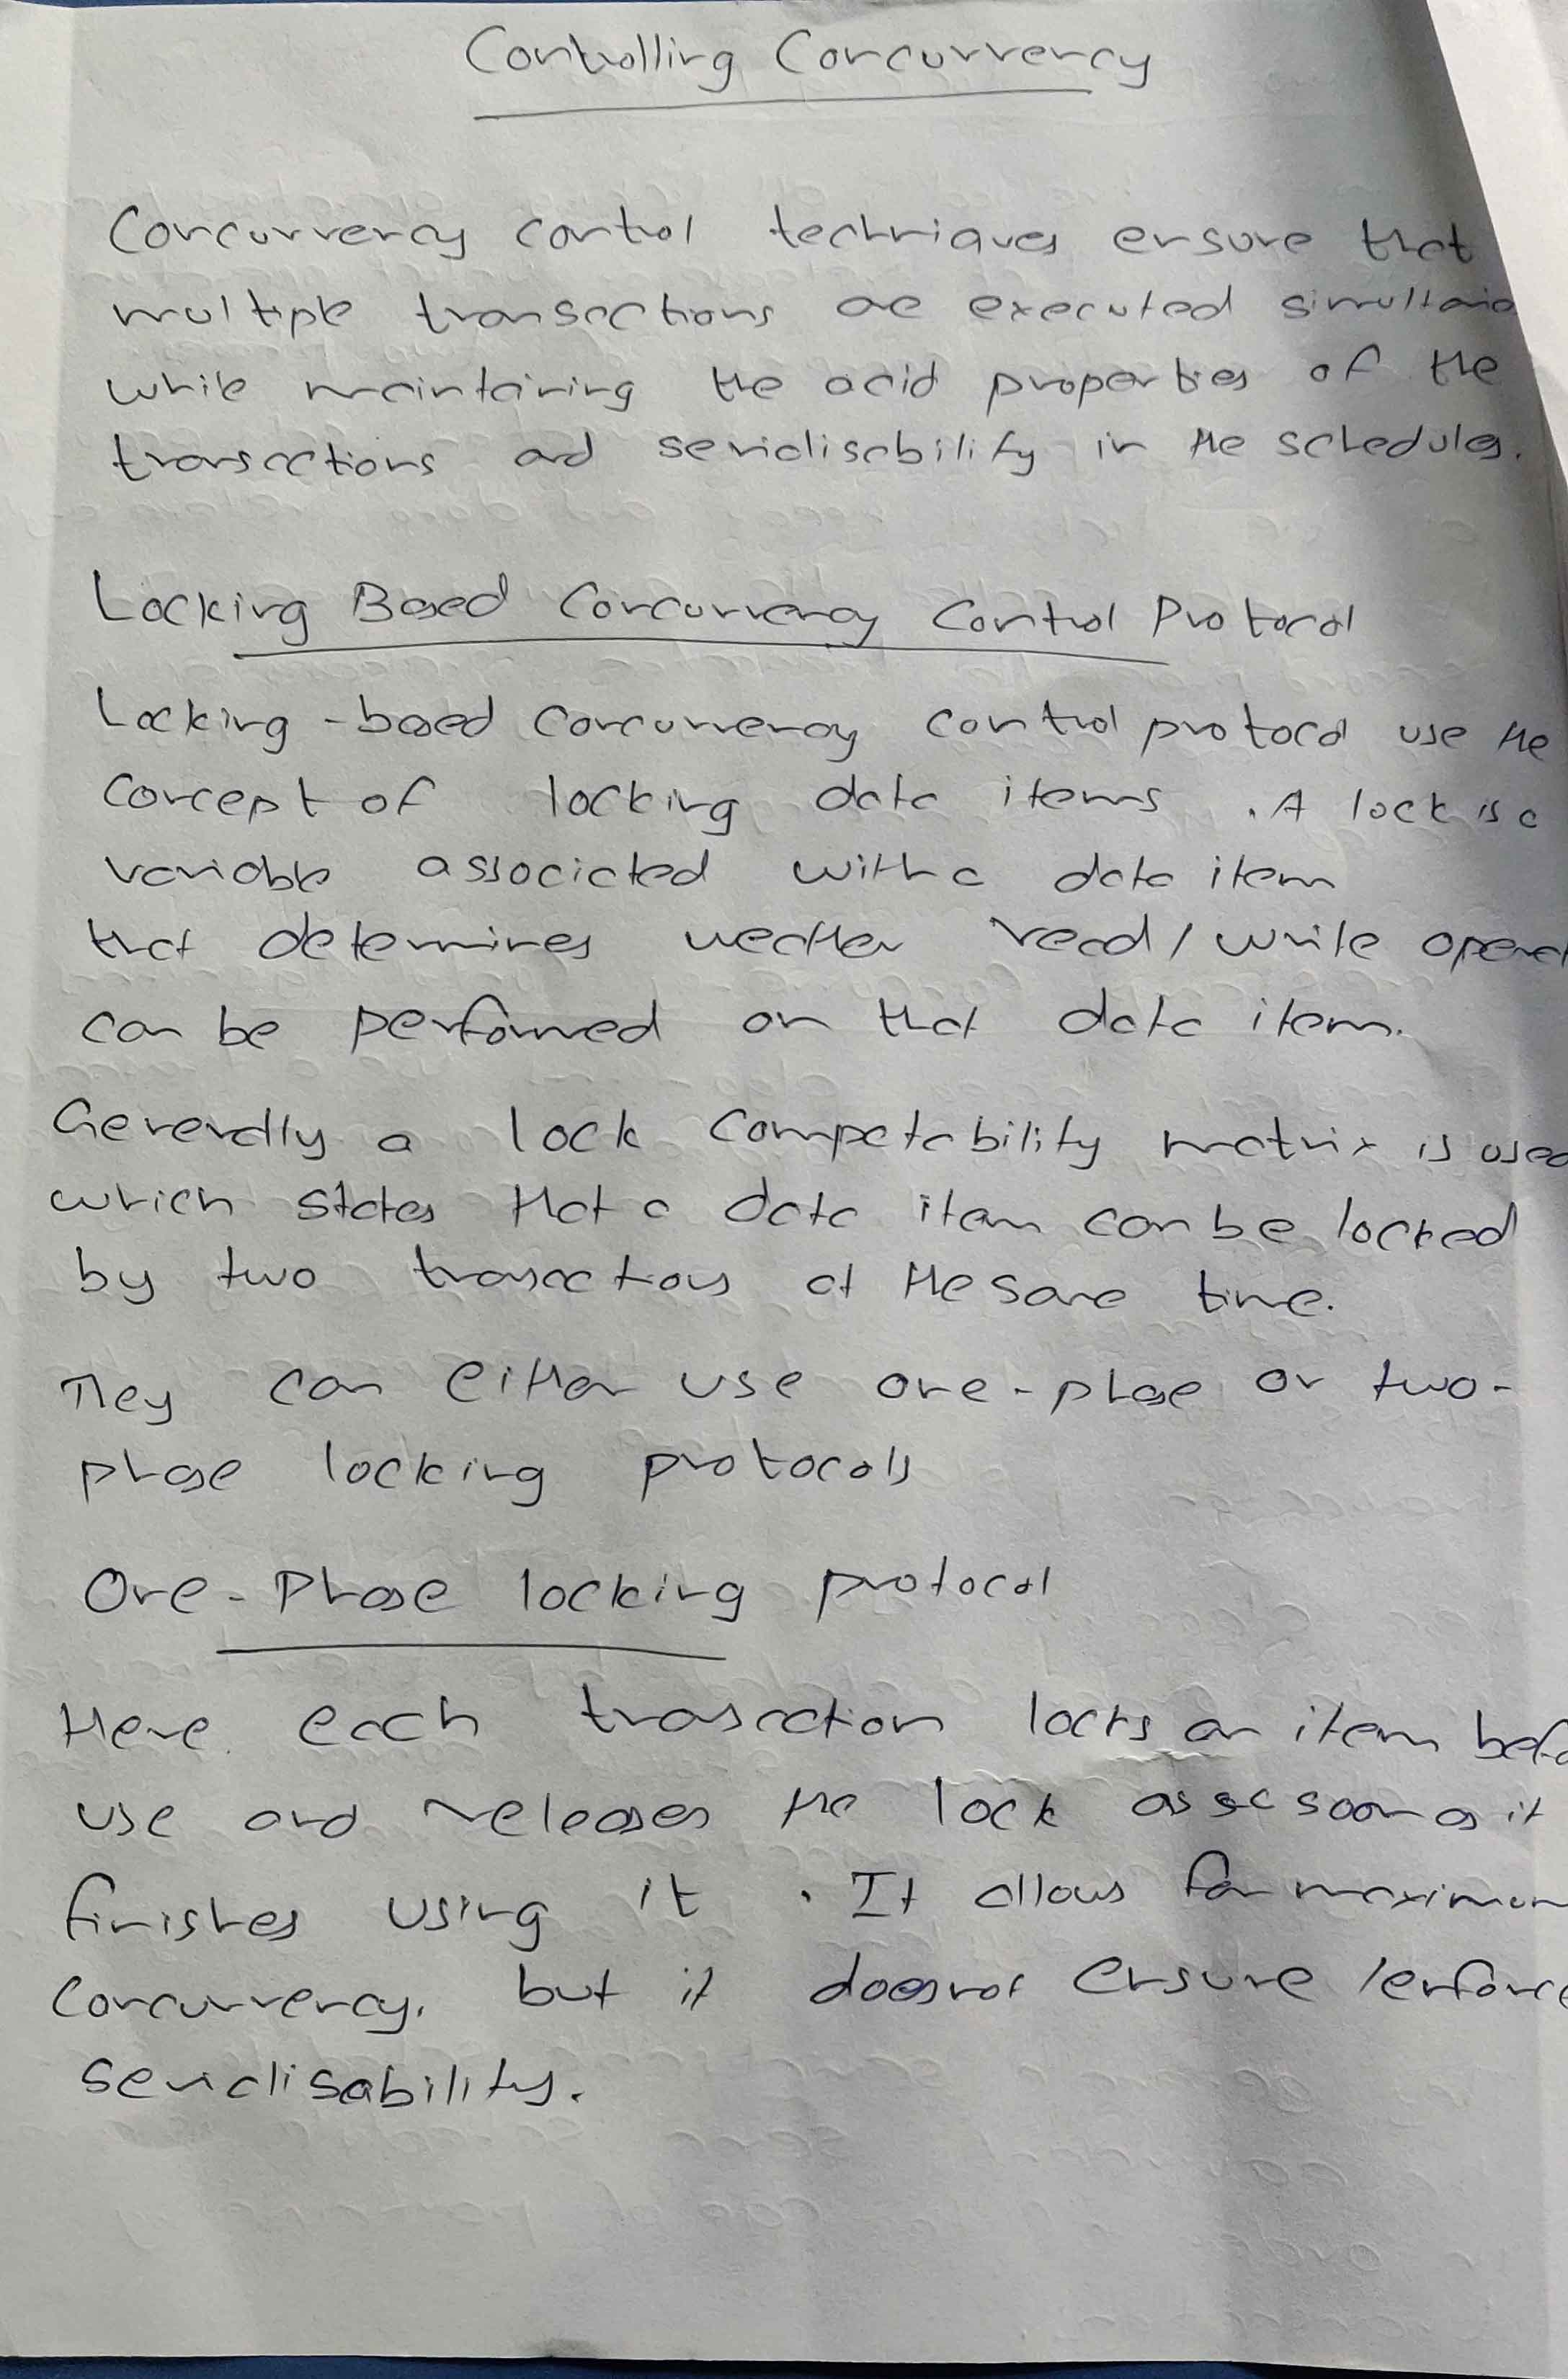 Controlling Concurrency
Concurrency control techniques ensure that
multiple transactions are executed
while maintaining the acid properties of the
transactions and serialisability in the schedules.
Locking Based Concurrency Control Protocol
Locking-based concurrency control protocol use the
concept of locking data items. A lock is a
variable associated with a data item
that determines weather read/write operat
can be performed on that data item.
Generally a lock compatability matrix is used
which states that a data item can be locked
by two transactions at the same time.
They can either use one-phase or two-
phase locking protocols
One-Phase locking protocol
Here each transaction locks an item befo
use and releases the lock as soon as it
finishes using it. It allows for maximum
concurrency, but it does not ensure/enforce
serialisability.